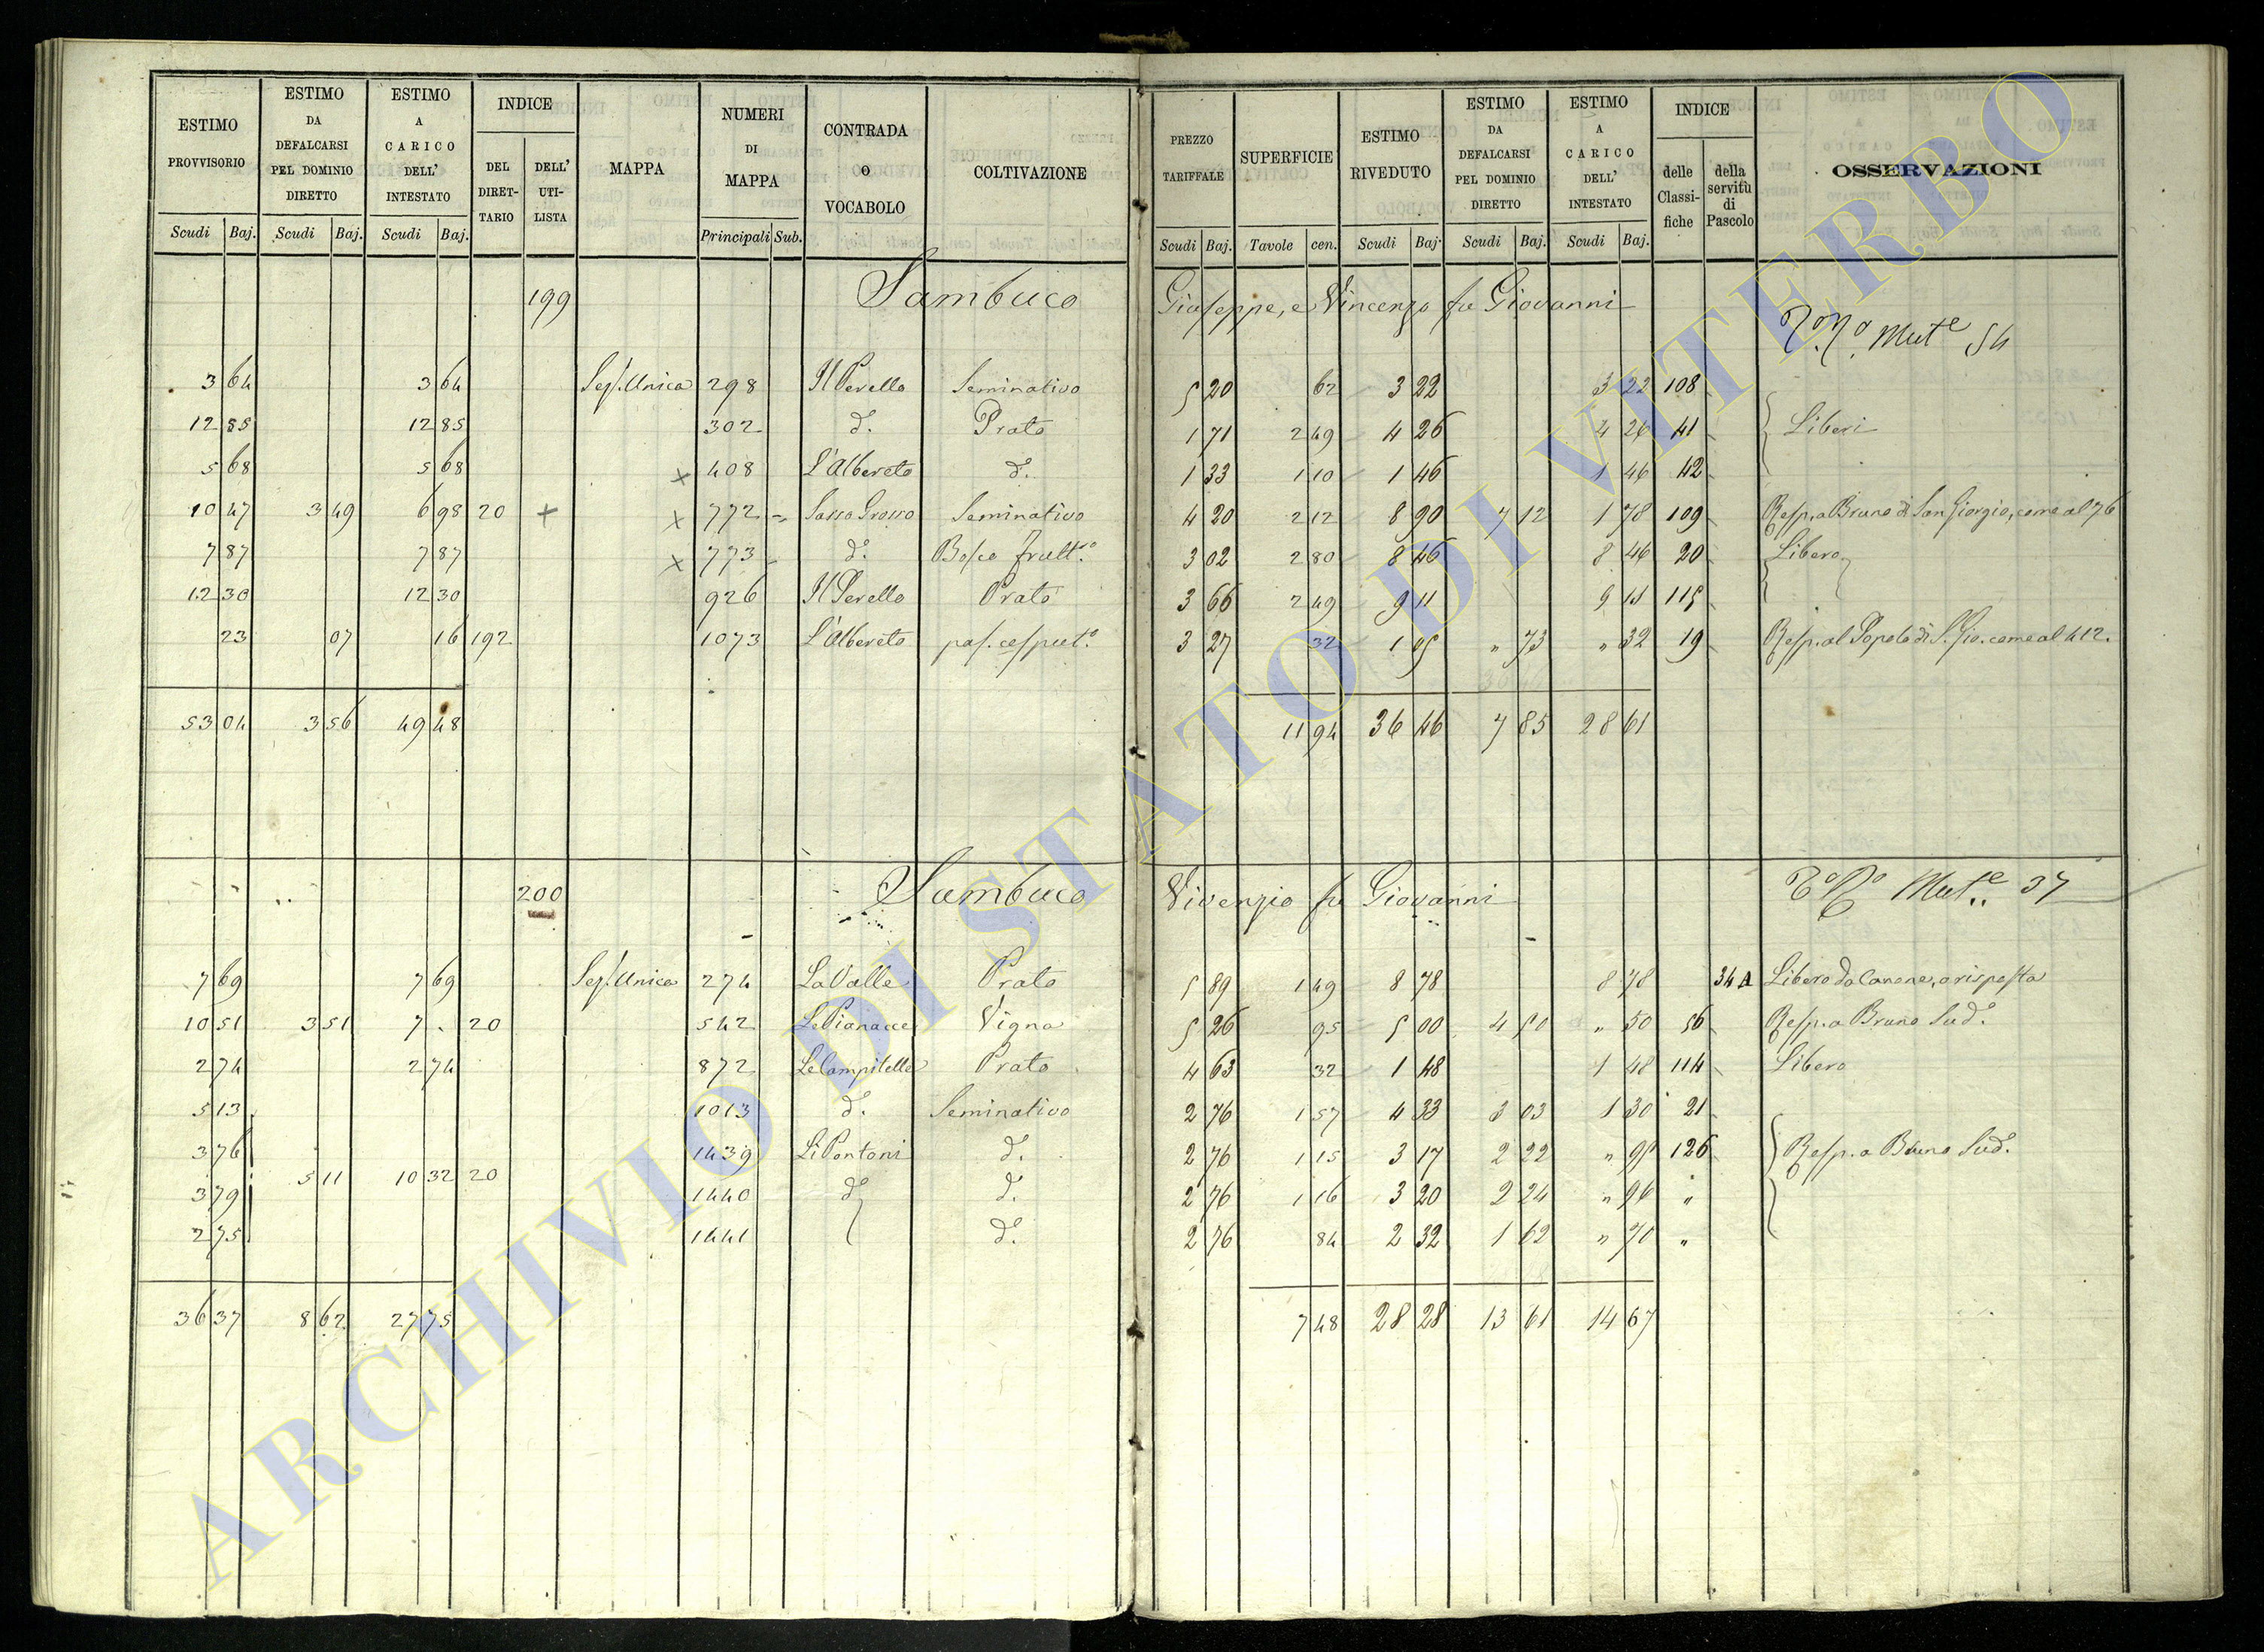 ESTIMO PROVVISORIO Scudi Baj. ESTIMO DA DEFALCARSI PEL DOMINIO DIRETTO Scudi Baj. ESTIMO A CARICO DELL' INTESTATO Scudi Baj. INDICE DEL DIRET- TARIO DELL' UTI- LISTA MAPPA NUMERI DI MAPPA Principali Sub. CONTRADA O VOCABOLO COLTIVAZIONE PREZZO TARIFFALE Scudi Baj. SUPERFICIE Tavole cen. ESTIMO RIVEDUTO Scudi Baj. ESTIMO DA DEFALCARSI PEL DOMINIO DIRETTO Scudi Baj. ESTIMO A CARICO DELL' INTESTATO Scudi Baj. INDICE delle Classi- fiche della servitù di Pascolo OSSERVAZIONI
199 Sambuco Giuseppe, e Vincenzo fu Giovanni
Mut.e 54
3 64 3 64 Sez. Unica 298 Il Perello Seminativo 5 20 62 3 22 3 22 108
12 85 12 85 302 d.o Prato 1 71 2 49 4 26 4 26 41 Liberi
5 68 5 68 x 408 L'Albereto d.o 1 33 1 10 1 46 1 46 42
10 47 3 49 6 98 20 + x 772 Sasso Grosso Seminativo 4 20 2 12 8 90 7 12 1 78 109 Resp. a Bruno di San Giorgio, come al 76
7 87 7 87 x 773 d.o Bosco frutt.o 3 02 2 80 8 46 8 46 20 Libero
12 30 12 30 926 Il Perello Prato 3 66 2 49 9 11 9 11 115
23 07 16 192 1073 L'Albereto pas. cesput.o 3 27 32 1 05 " 73 " 32 19 Resp. al Popolo di S. Gio. come al 412.
53 04 3 56 49 48 11 94 36 46 7 85 28 61
200 Sambuco Vivenzio fu Giovanni Mut.e 37
7 69 7 69 Sez. Unica 274 La Valle Prato 5 89 1 49 8 78 8 78 34 A Libero da Canone, a risposta
10 51 3 51 7 . 20 542 Le Pianacce Vigna 5 26 95 5 00 4 50 " 50 56 Resp. a Bruno Sud.o
2 74 2 74 872 Le Campitelle Prato 4 63 32 1 48 1 48 114 Libero
5 13 1013 d.o Seminativo 2 76 1 57 4 33 3 03 1 30 21
3 76 1439 Li Pontoni d.o 2 76 1 15 3 17 2 22 " 95 126 Resp. a Bruno Sud.o
5 11 10 32 20
3 79 1440 d.o d.o 2 76 1 16 3 20 2 24 " 96 "
2 75 1441 d.o 2 76 84 2 32 1 62 " 70 "
36 37 8 62 27 75 7 48 28 28 13 61 14 67
ARCHIVIO DI STATO DI VITERBO